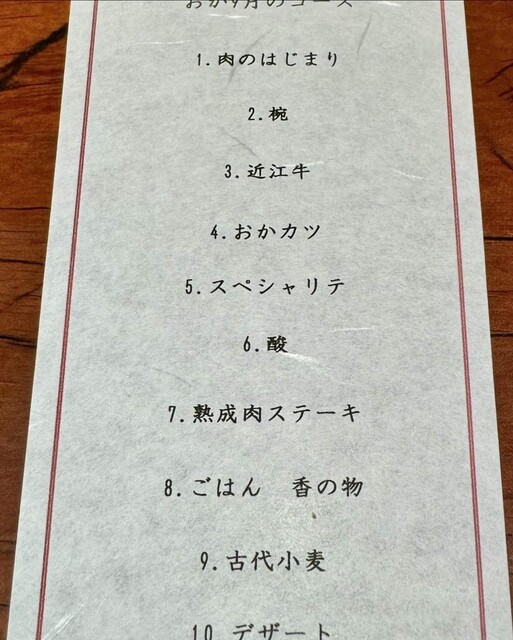 おか9月のコース
1.肉のはじまり
2.椀
3.近江牛
4.おかカツ
5.スペシャリテ
6.酸
7.熟成肉ステーキ
8.ごはん　香の物
9.古代小麦
10.デザート